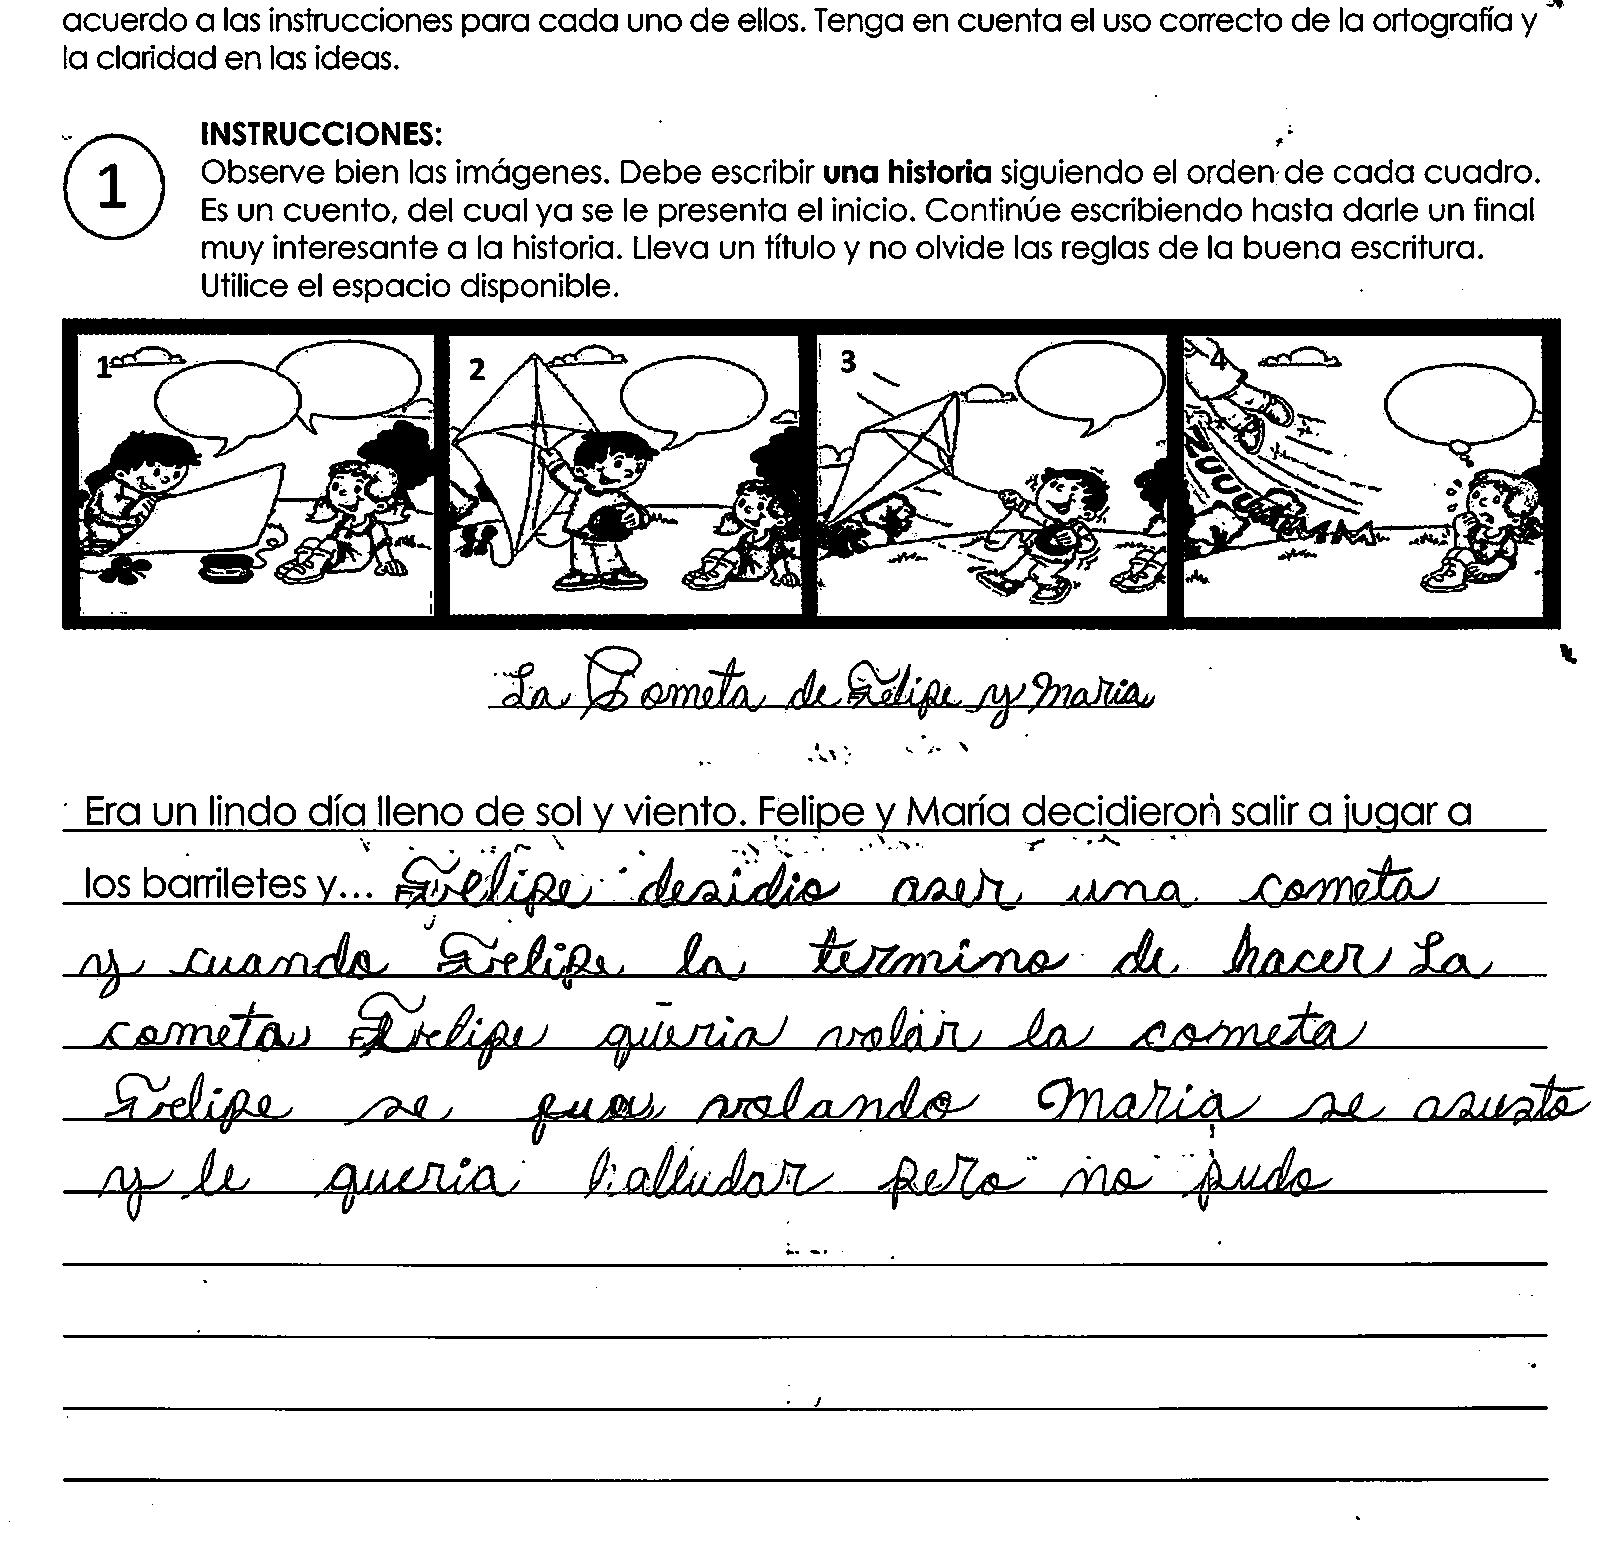 acuerdo a las instrucciones para cada uno de ellos. Tenga en cuenta el uso correcto de la ortografía y
la claridad en las ideas.
1
INSTRUCCIONES:
Observe bien las imágenes. Debe escribir una historia siguiendo el orden de cada cuadro.
Es un cuento, del cual ya se le presenta el inicio. Continúe escribiendo hasta darle un final
muy interesante a la historia. Lleva un título y no olvide las reglas de la buena escritura.
Utilice el espacio disponible.
1 2 3 4
La Cometa de Felipe y Maria
Era un lindo día lleno de sol y viento. Felipe y María decidieron salir a jugar a
los barriletes y... Felipe desidio aser una cometa
y cuando Felipe la termino de hacer La
cometa Felipe queria volar la cometa
Felipe se volando Maria se asusto
y le queria halludar pero no pudo